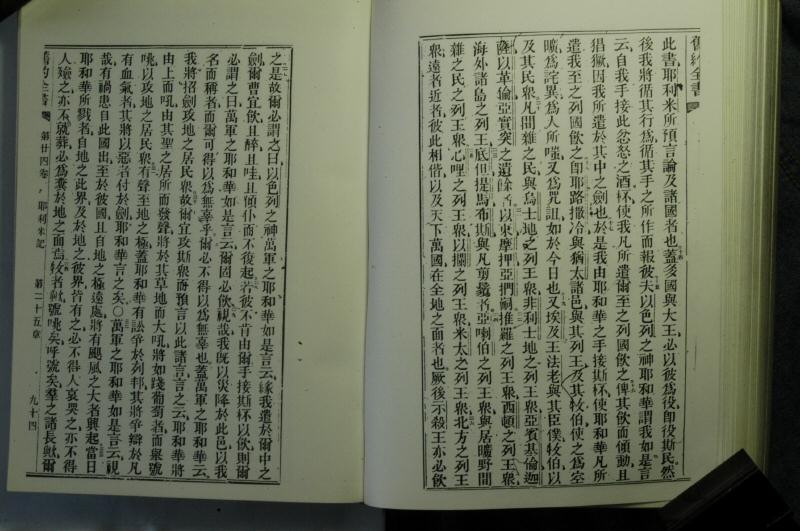 舊約全書
此書、耶利米所預言論及諸國者也、蓋多國與大王、必以彼為役、卽役斯民、然
後我將循其行為、循其手之所作、而報彼、夫以色列之神耶和華謂我如是言
云、自我手接此忿怒之酒杯、使我凡所遣爾至之列國飲之、俾其飲而傾動、且
猖獗、因我所遣於其中之劍也、於是我由耶和華之手接斯杯、使耶和華凡所
遣我至之列國飲之、卽耶路撒冷與猶太諸邑、與其列王、及其牧伯、使之為空
曠、為詫異、為人所嗤、又為咒詛、如於今日也、又埃及王法老、與其臣僕牧伯、以
及其民衆、凡間雜之民、與烏士地之列王衆、非利士地之列王衆、亞實基倫、迦
薩、以革倫、亞實突之遺餘者、以東、摩押、亞捫嗣、推羅之列王衆、西頓之列王衆、
海外諸島之列王、底但、提馬、布斯、與凡剪鬚者、亞喇伯之列王衆、與居曠野間
雜之民之列王衆、心哩之列王衆、以攔之列王衆、米太之列王衆、北方之列王
衆、遠者近者、彼此相偕、以及天下萬國、在全地之面者也、厥後示殺王亦必飲
之、是故爾必謂之曰、以色列之神萬軍之耶和華如是言云、緣我遣於爾中之
劍、爾曹宜飲且醉、且哇、且傾仆而不復起、若彼不肯由爾手接斯杯以飲、則爾
必謂之曰、萬軍之耶和華如是言云、爾固必飲、視哉、我旣以災降於此邑、以我
名而稱者、而爾可得以為無辜乎、爾必不得以為無辜也、蓋萬軍之耶和華云、
我將招劍攻地之居民衆、故爾宜攻斯衆而預言、以此諸言、言之云、耶和華將
由上而吼、由其聖之居所而發聲、將於其草地而大吼、將如踐葡萄者而舉號
咷、以攻地之居民衆、有聲至地之極、蓋耶和華有訟爭於列邦、其將爭辯於凡
有血氣者、其將以惡者付於劍、耶和華言之矣○萬軍之耶和華如是言云、視
哉、有禍患自此國出至於彼國、且自地之極遠處、將有颶風之大者興起、當日
耶和華所戮者、自地之此界及於地之彼界、皆有之、必不得人哀哭之、亦不得
人殮之、亦不就葬、必為糞於地之面、吿牧者歟、號咷矣、呼號矣、羣之諸長歟、爾
舊約全書 第廿四卷 耶利米記 第二十五章 九十四